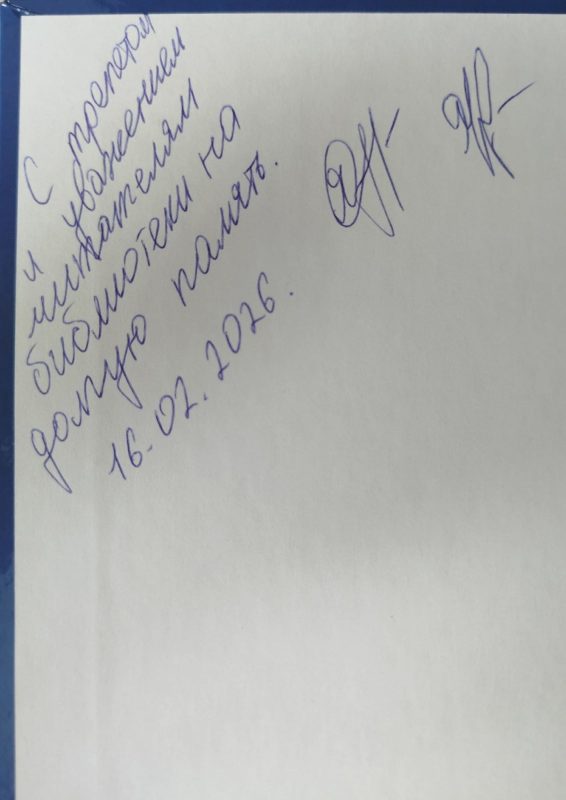 С трепетом
и уважением
читателям
библиотеки на
долгую память.
16.02.2026.